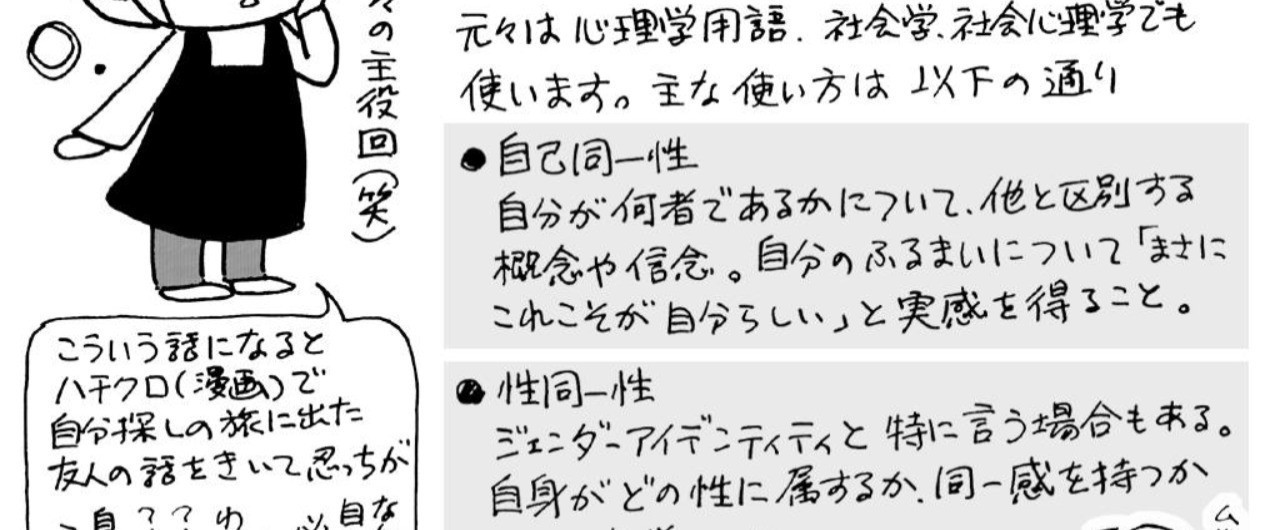 元々は心理学用語、社会学、社会心理学でも
使います。主な使い方は以下の通り
●自己同一性
自分が何者であるかについて、他と区別する
概念や信念。自分のふるまいについて「まさに
これこそが自分らしい」と実感を得ること。
●性同一性
ジェンダーアイデンティティと特に言う場合もある。
自身がどの性に属するか、同一感を持つか
の主役回(笑)
こういう話になると
ハチクロ(漫画)で
自分探しの旅に出た
友人の話をきいて忍っちが